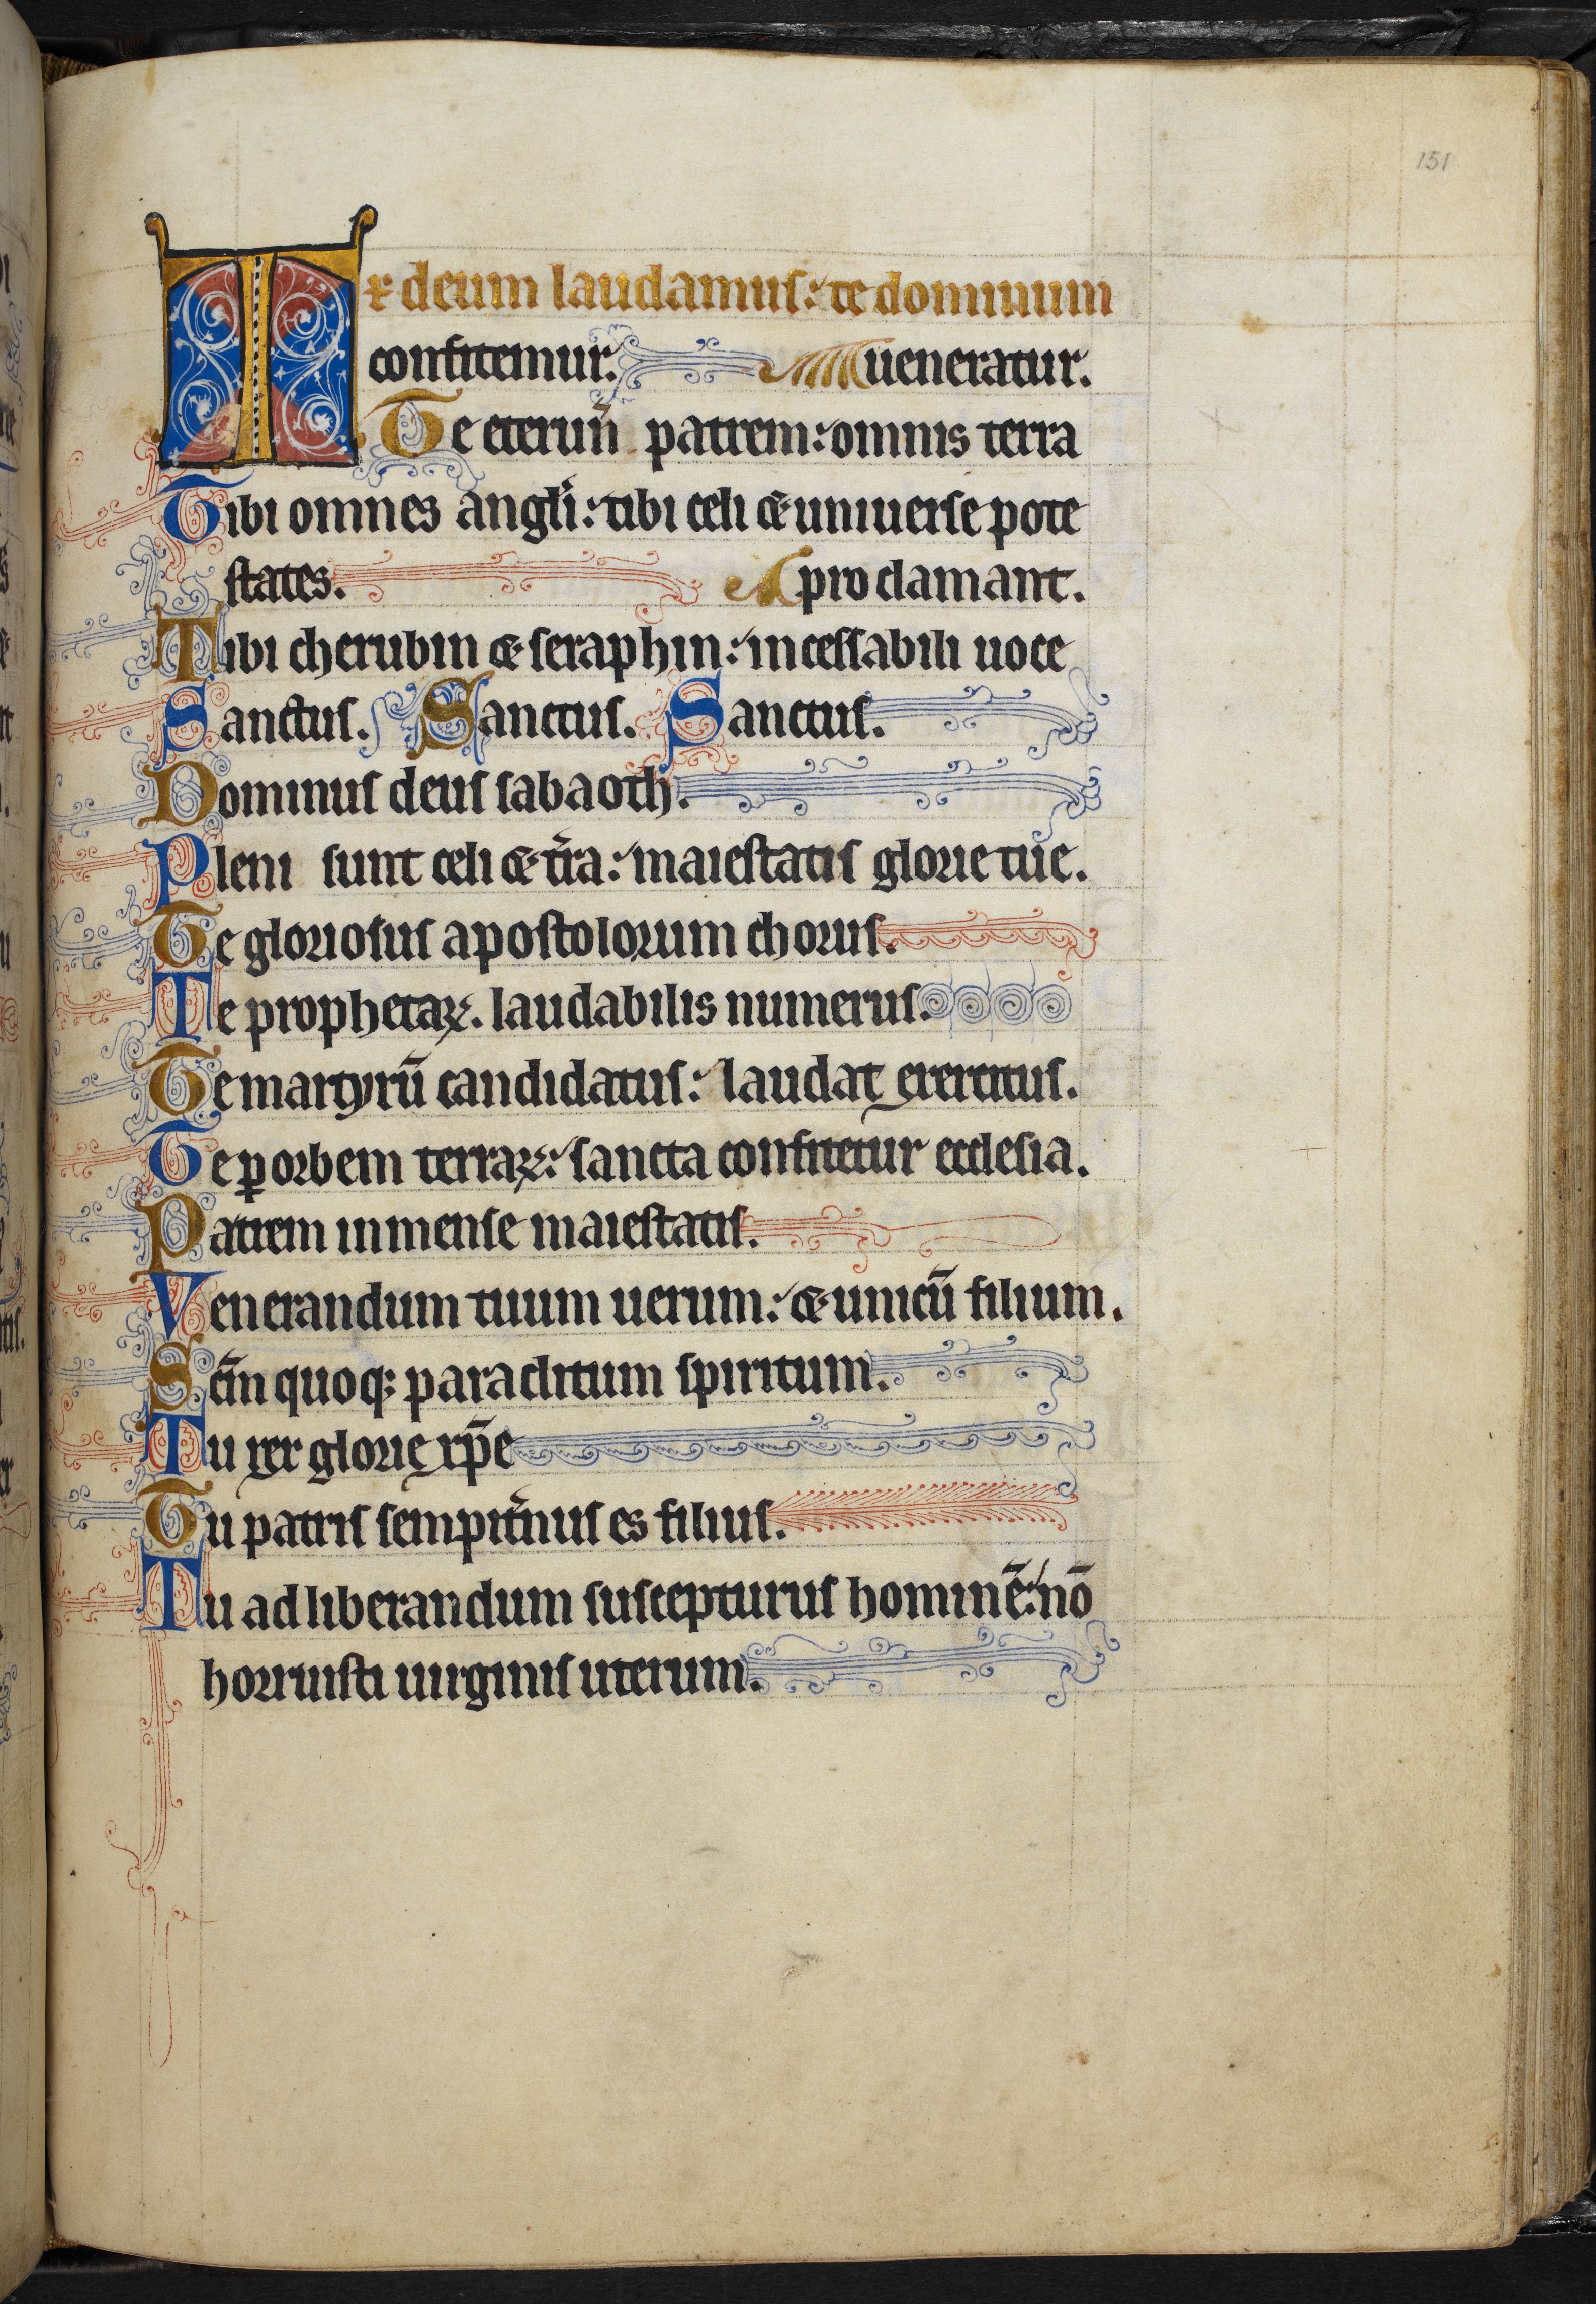 151
Te deum laudamus: te dominum
confitemur. ueneratur.
Te eternū patrem: omnis terra
Tibi omnes angli: tibi celi & uniuerse pote
states. proclamant.
Tibi cherubin & seraphin: incessabili uoce
Sanctus. Sanctus. Sanctus.
Dominus deus sabaoth.
Pleni sunt celi & t̉ra: maiestatis glorie tue.
Te gloriosus apostolorum chorus.
Te prophetaꝝ. laudabilis numerus.
Te martyrū candidatus: laudat exercitus.
Te ꝑ orbem terraꝝ: sancta confitetur ecclesia.
Patrem inmense maiestatis.
Venerandum tuum uerum: & unicū filium.
Scm̄ quoq; paraclitum spiritum.
Tu rex glorię xp̄e
Tu patris sempit̉nus es filius.
Tu ad liberandum suscepturus hominē: nō
horruisti uirginis uterum.